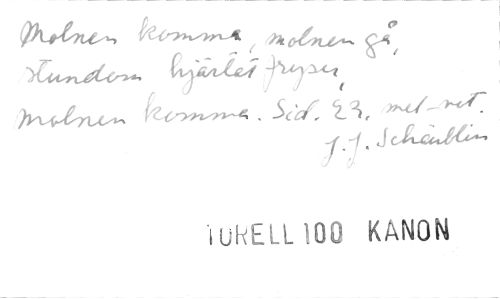 Molnen komma, molnen gå,
stundom hjärtat fryser,
molnen komma. Sid. 23. mel-not.
J. J. Schäublin
TORELL 100 KANON